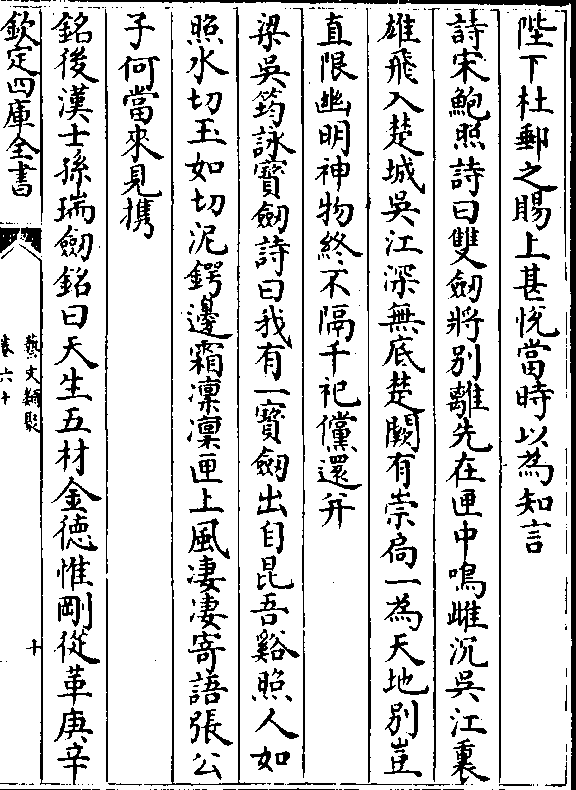 陛下杜郵之賜上甚悅當時以為知言
詩宋鮑照詩曰雙劒將別離先在匣中鳴雌沉吳江裏
雄飛入楚城吳江深無底楚闕有崇扃一為天地別豈
直限幽明神物終不隔千祀儻還并
梁吳筠詠寶劒詩曰我有一寶劒出自昆吾谿照人如
照水切玉如切泥鍔邊霜凜凜匣上風凄凄寄語張公
子何當來見携
銘後漢士孫瑞劒銘曰天生五材金德惟剛從革庚辛
欽定四庫全書
藝文類聚
卷六十
十